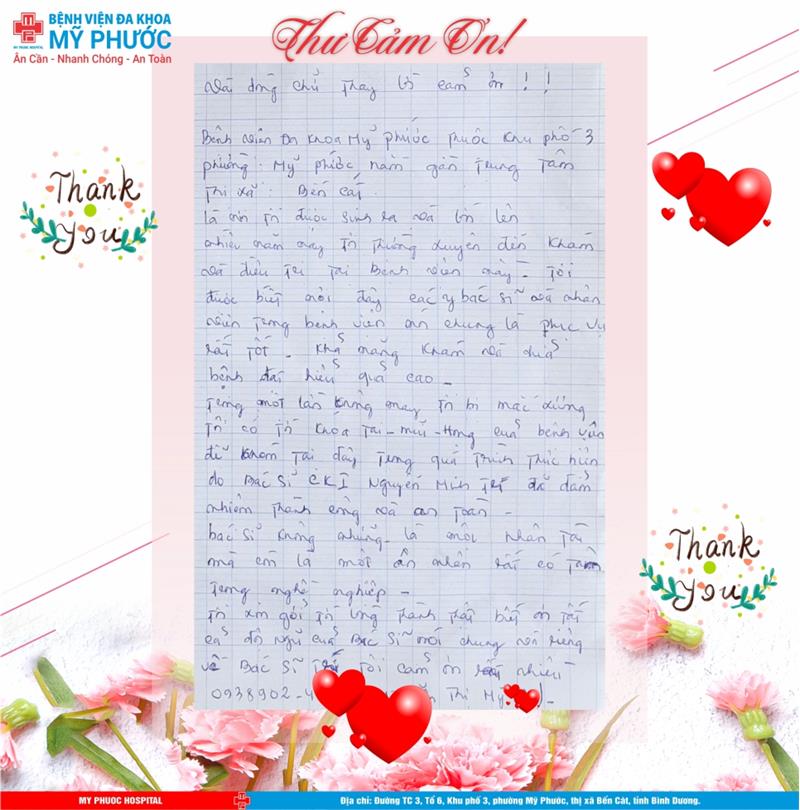 BỆNH VIỆN ĐA KHOA
MỸ PHƯỚC
MY PHUOC HOSPITAL
Ân Cần - Nhanh Chóng - An Toàn
Thư Cảm Ơn!
Vài dòng chữ thay lời cảm ơn!!
Bệnh viện Đa khoa Mỹ Phước thuộc khu phố 3
phường: Mỹ Phước nằm gần trung tâm
Thị xã: Bến Cát.
là nơi tôi được sinh ra và lớn lên
nhiều năm nay tôi thường xuyên đến khám
và điều trị tại Bệnh viện này - Tôi
được biết nơi đây các y bác sĩ và nhân
viên trong bệnh viện nói chung là phục vụ
rất tốt - khả năng khám và chữa
bệnh đạt hiệu quả cao -
Trong một lần không may tôi bị mắc xương
tôi có tới khoa Tai-mũi-Họng của bệnh viện
để khám tại đây trong quá trình thực hiện
do Bác sĩ CKI Nguyễn Minh Trí đã đảm
nhiệm thành công và an toàn -
bác sĩ không những là một nhân tài
mà còn là một ân nhân rất có tâm
trong nghề nghiệp -
Tôi xin gởi tới lòng thành thật biết ơn tất
cả đội ngũ của Bác sĩ nói chung và riêng
về Bác sĩ Trí tôi cảm ơn rất nhiều
0938902-4 Thị Mỹ
Thank
You
Thank
You
MY PHUOC HOSPITAL
Địa chỉ: Đường TC 3, Tổ 6, Khu phố 3, phường Mỹ Phước, thị xã Bến Cát, tỉnh Bình Dương.